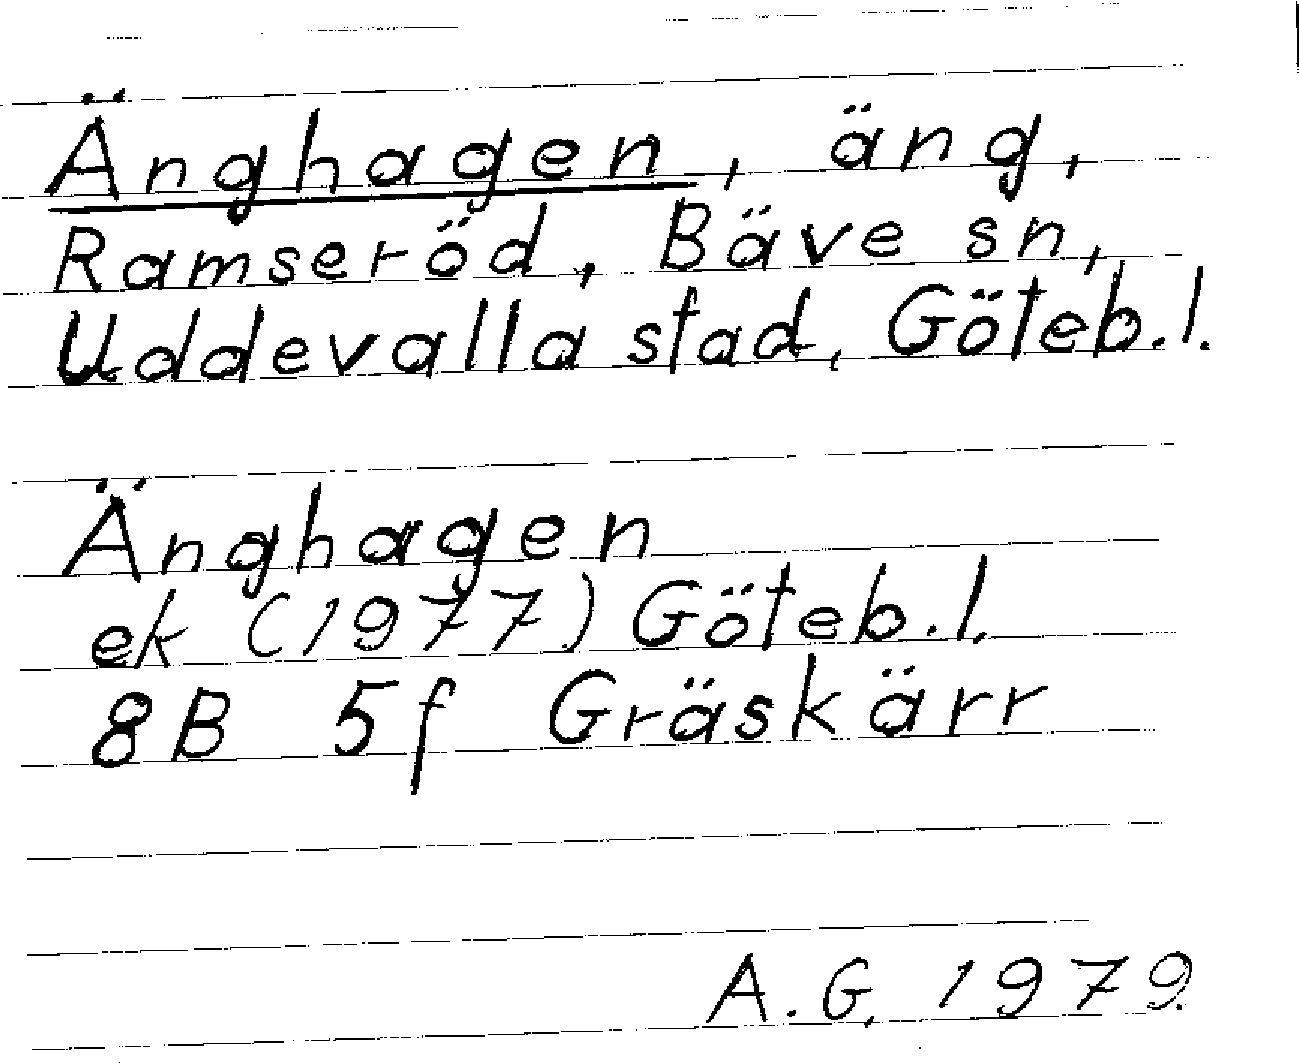 Änghagen, äng,
Ramseröd, Bäve sn,
Uddevalla stad, Göteb.l.
Änghagen
ek (1977) Göteb.l.
8B 5f Gräskärr
A.G. 1979.